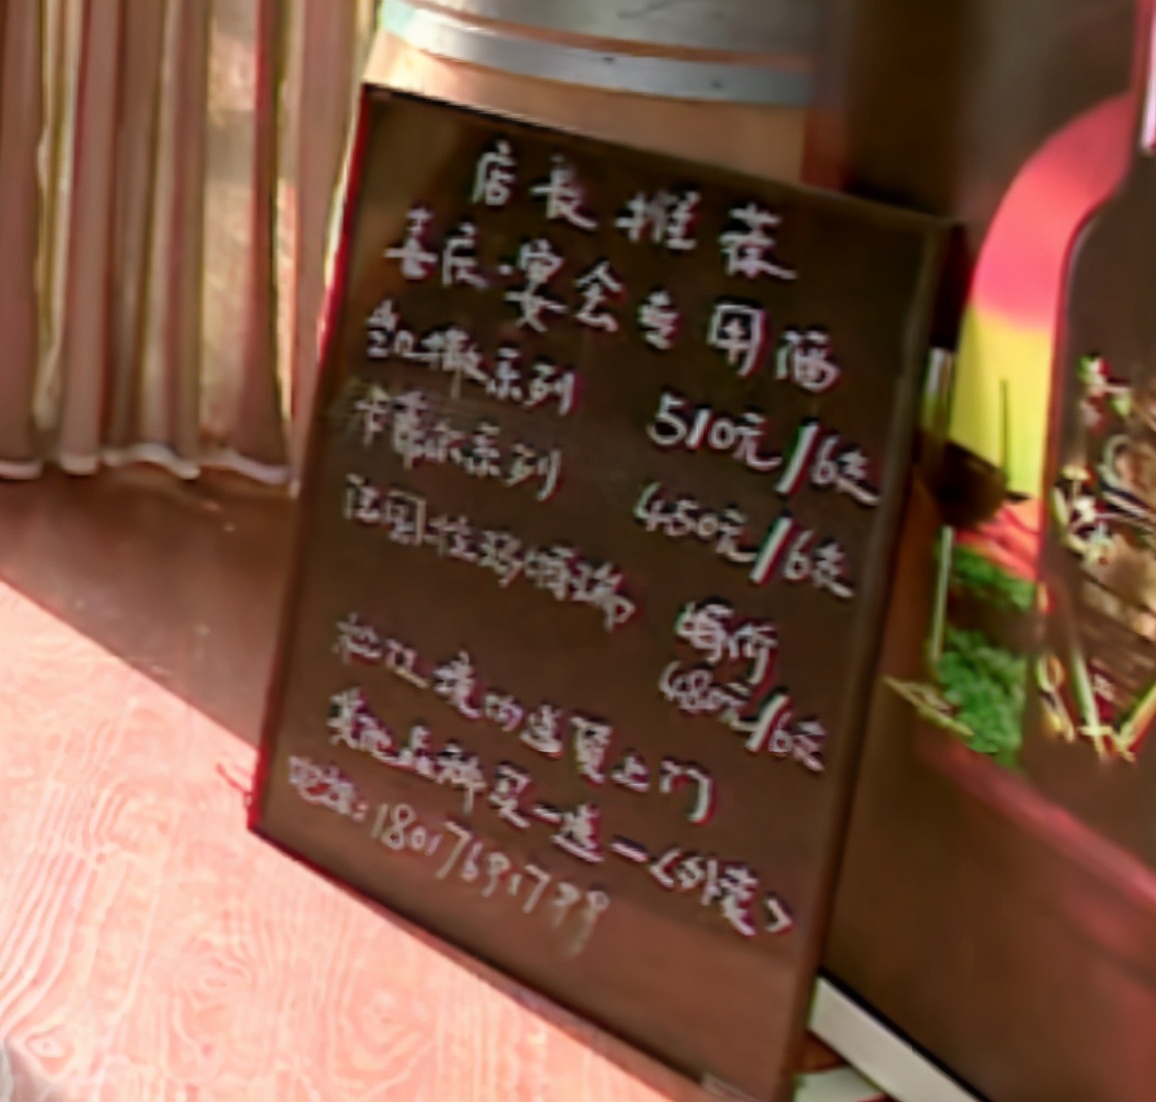 店长推荐
喜庆·宴会专用酒
系列 510元/6支
卡蒂尔系列 450元/6支
法国拉玛博瑞 特价
480元/6支
松江境内送货上门
其他品种买一送一<外卖>
电话:180176